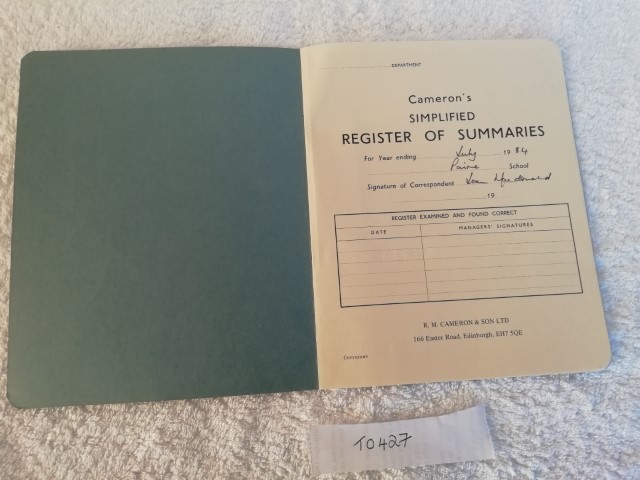 DEPARTMENT
Cameron's
SIMPLIFIED
REGISTER OF SUMMARIES
For Year ending July 1984
Pairc School
Signature of Correspondent Macdonald
19
REGISTER EXAMINED AND FOUND CORRECT
DATE MANAGERS' SIGNATURES
R. M. CAMERON & SON LTD
166 Easter Road, Edinburgh, EH7 5QE
COPYRIGHT
T0427